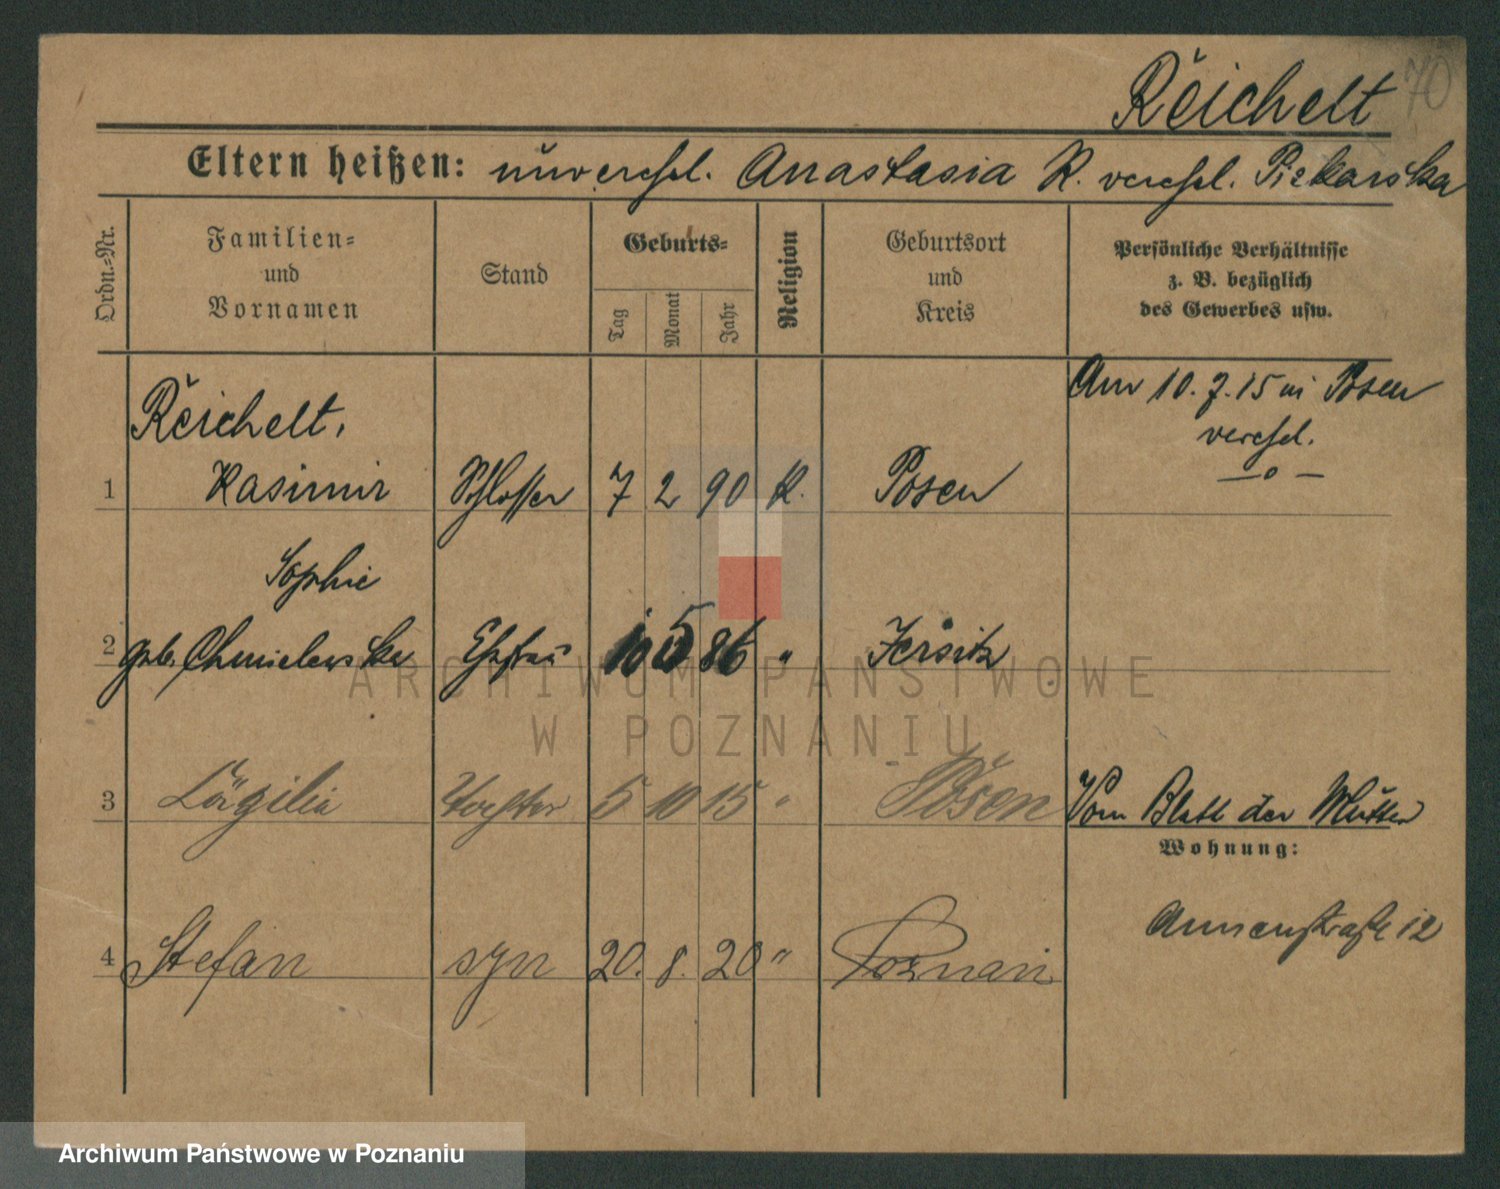 Reichelt 70
Eltern heißen: unverehel. Anastasia R. verehel. Piekarska
Ordn.-Nr.
Familien-
und
Vornamen
Stand
Geburts-
Tag
Monat
Jahr
Religion
Geburtsort
und
Kreis
Persönliche Verhältnisse
z. B. bezüglich
des Gewerbes usw.
Am 10.7.15 in Posen
verehel.
Reichelt,
1 Kasimir Schlosser 7 2 90 K. Posen
Sophie
2 geb. Chmielewska Ehefrau 10 5 86 " Jersitz
3 Cäzilia Tochter 5 10 15 " Posen Vom Blatt der Mutter
Wohnung:
Annenstraße 12
4 Stefan syn 20. 8. 20 " Poznań
ARCHIWUM PAŃSTWOWE
W POZNANIU
Archiwum Państwowe w Poznaniu